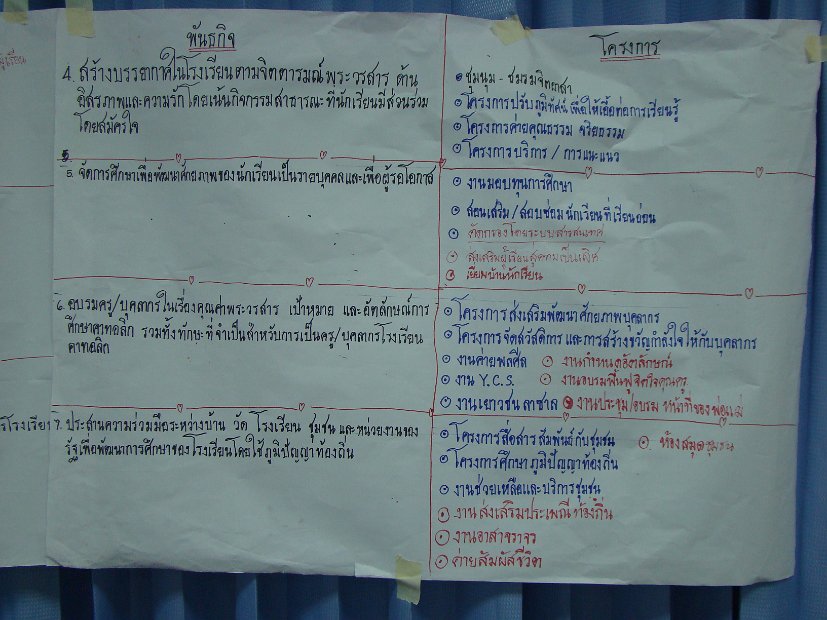 พันธกิจ
4. สร้างบรรยากาศในโรงเรียนตามจิตตารมณ์พระวรสาร ด้าน
อิสรภาพและความรักโดยเน้นกิจกรรมสาธารณะที่นักเรียนมีส่วนร่วม
โดยสมัครใจ
5. จัดการศึกษาเพื่อพัฒนาศักยภาพของนักเรียนเป็นรายบุคคลและเพื่อผู้รอโอกาส
6. อบรมครู/บุคลากรในเรื่องคุณค่าพระวรสาร เป้าหมาย และอัตลักษณ์การ
ศึกษาคาทอลิก รวมทั้งทักษะที่จำเป็นสำหรับการเป็นครู/บุคลากรโรงเรียน
คาทอลิก
7. ประสานความร่วมมือระหว่างบ้าน วัด โรงเรียน ชุมชน และหน่วยงานของ
รัฐเพื่อพัฒนาการศึกษาของโรงเรียนโดยใช้ภูมิปัญญาท้องถิ่น
โครงการ
ชุมนุม - ชมรมจิตอาสา
โครงการปรับภูมิทัศน์ เพื่อให้เอื้อต่อการเรียนรู้
โครงการค่ายคุณธรรม จริยธรรม
โครงการบริการ / การแนะแนว
งานมอบทุนการศึกษา
สอนเสริม / สอนซ่อม นักเรียนที่เรียนอ่อน
คัดกรองโดยระบบสารสนเทศ
ส่งเสริมผู้เรียนสู่ความเป็นเลิศ
เยี่ยมบ้านนักเรียน
โครงการส่งเสริมพัฒนาศักยภาพบุคลากร
โครงการจัดสวัสดิการ และการสร้างขวัญกำลังใจให้กับบุคลากร
งานค่ายพลศีล งานกำหนดอัตลักษณ์
งาน Y.C.S. งานอบรมฟื้นฟูจิตใจคุณครู
งานเยาวชน ลาซาล งานประชุม/อบรม หน้าที่ของพ่อแม่
โครงการสื่อสารสัมพันธ์กับชุมชน ห้องสมุดชุมชน
โครงการศึกษาภูมิปัญญาท้องถิ่น
งานช่วยเหลือและบริการชุมชน
งานส่งเสริมประเพณีท้องถิ่น
งานอาสาจราจร
ค่ายสัมผัสชีวิต